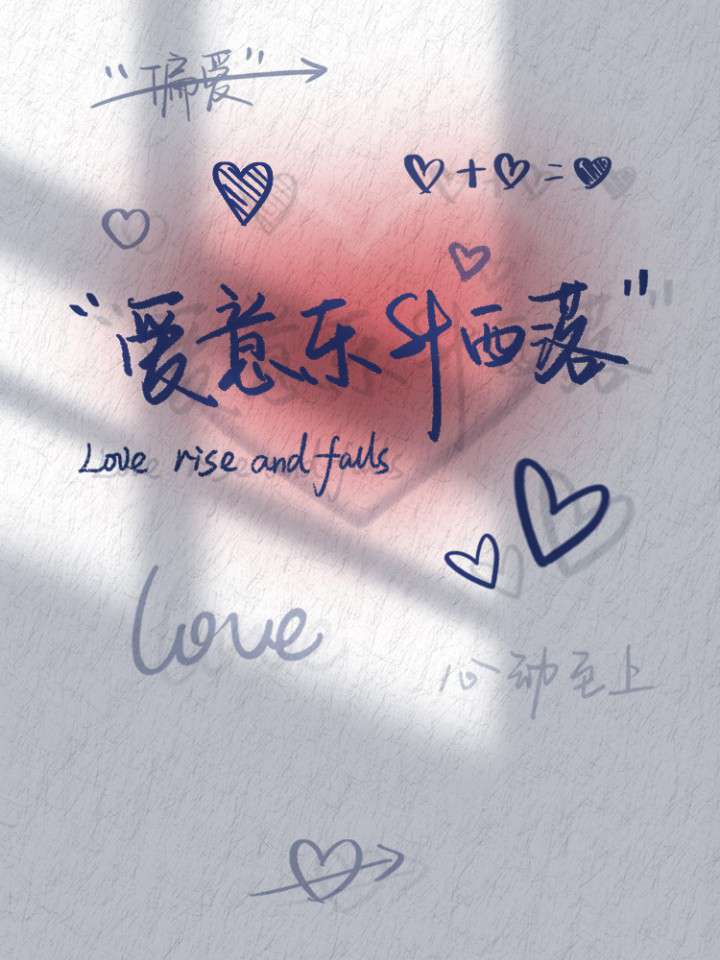 “偏爱”
“爱意东升西落”
Love rise and falls
love
心动至上